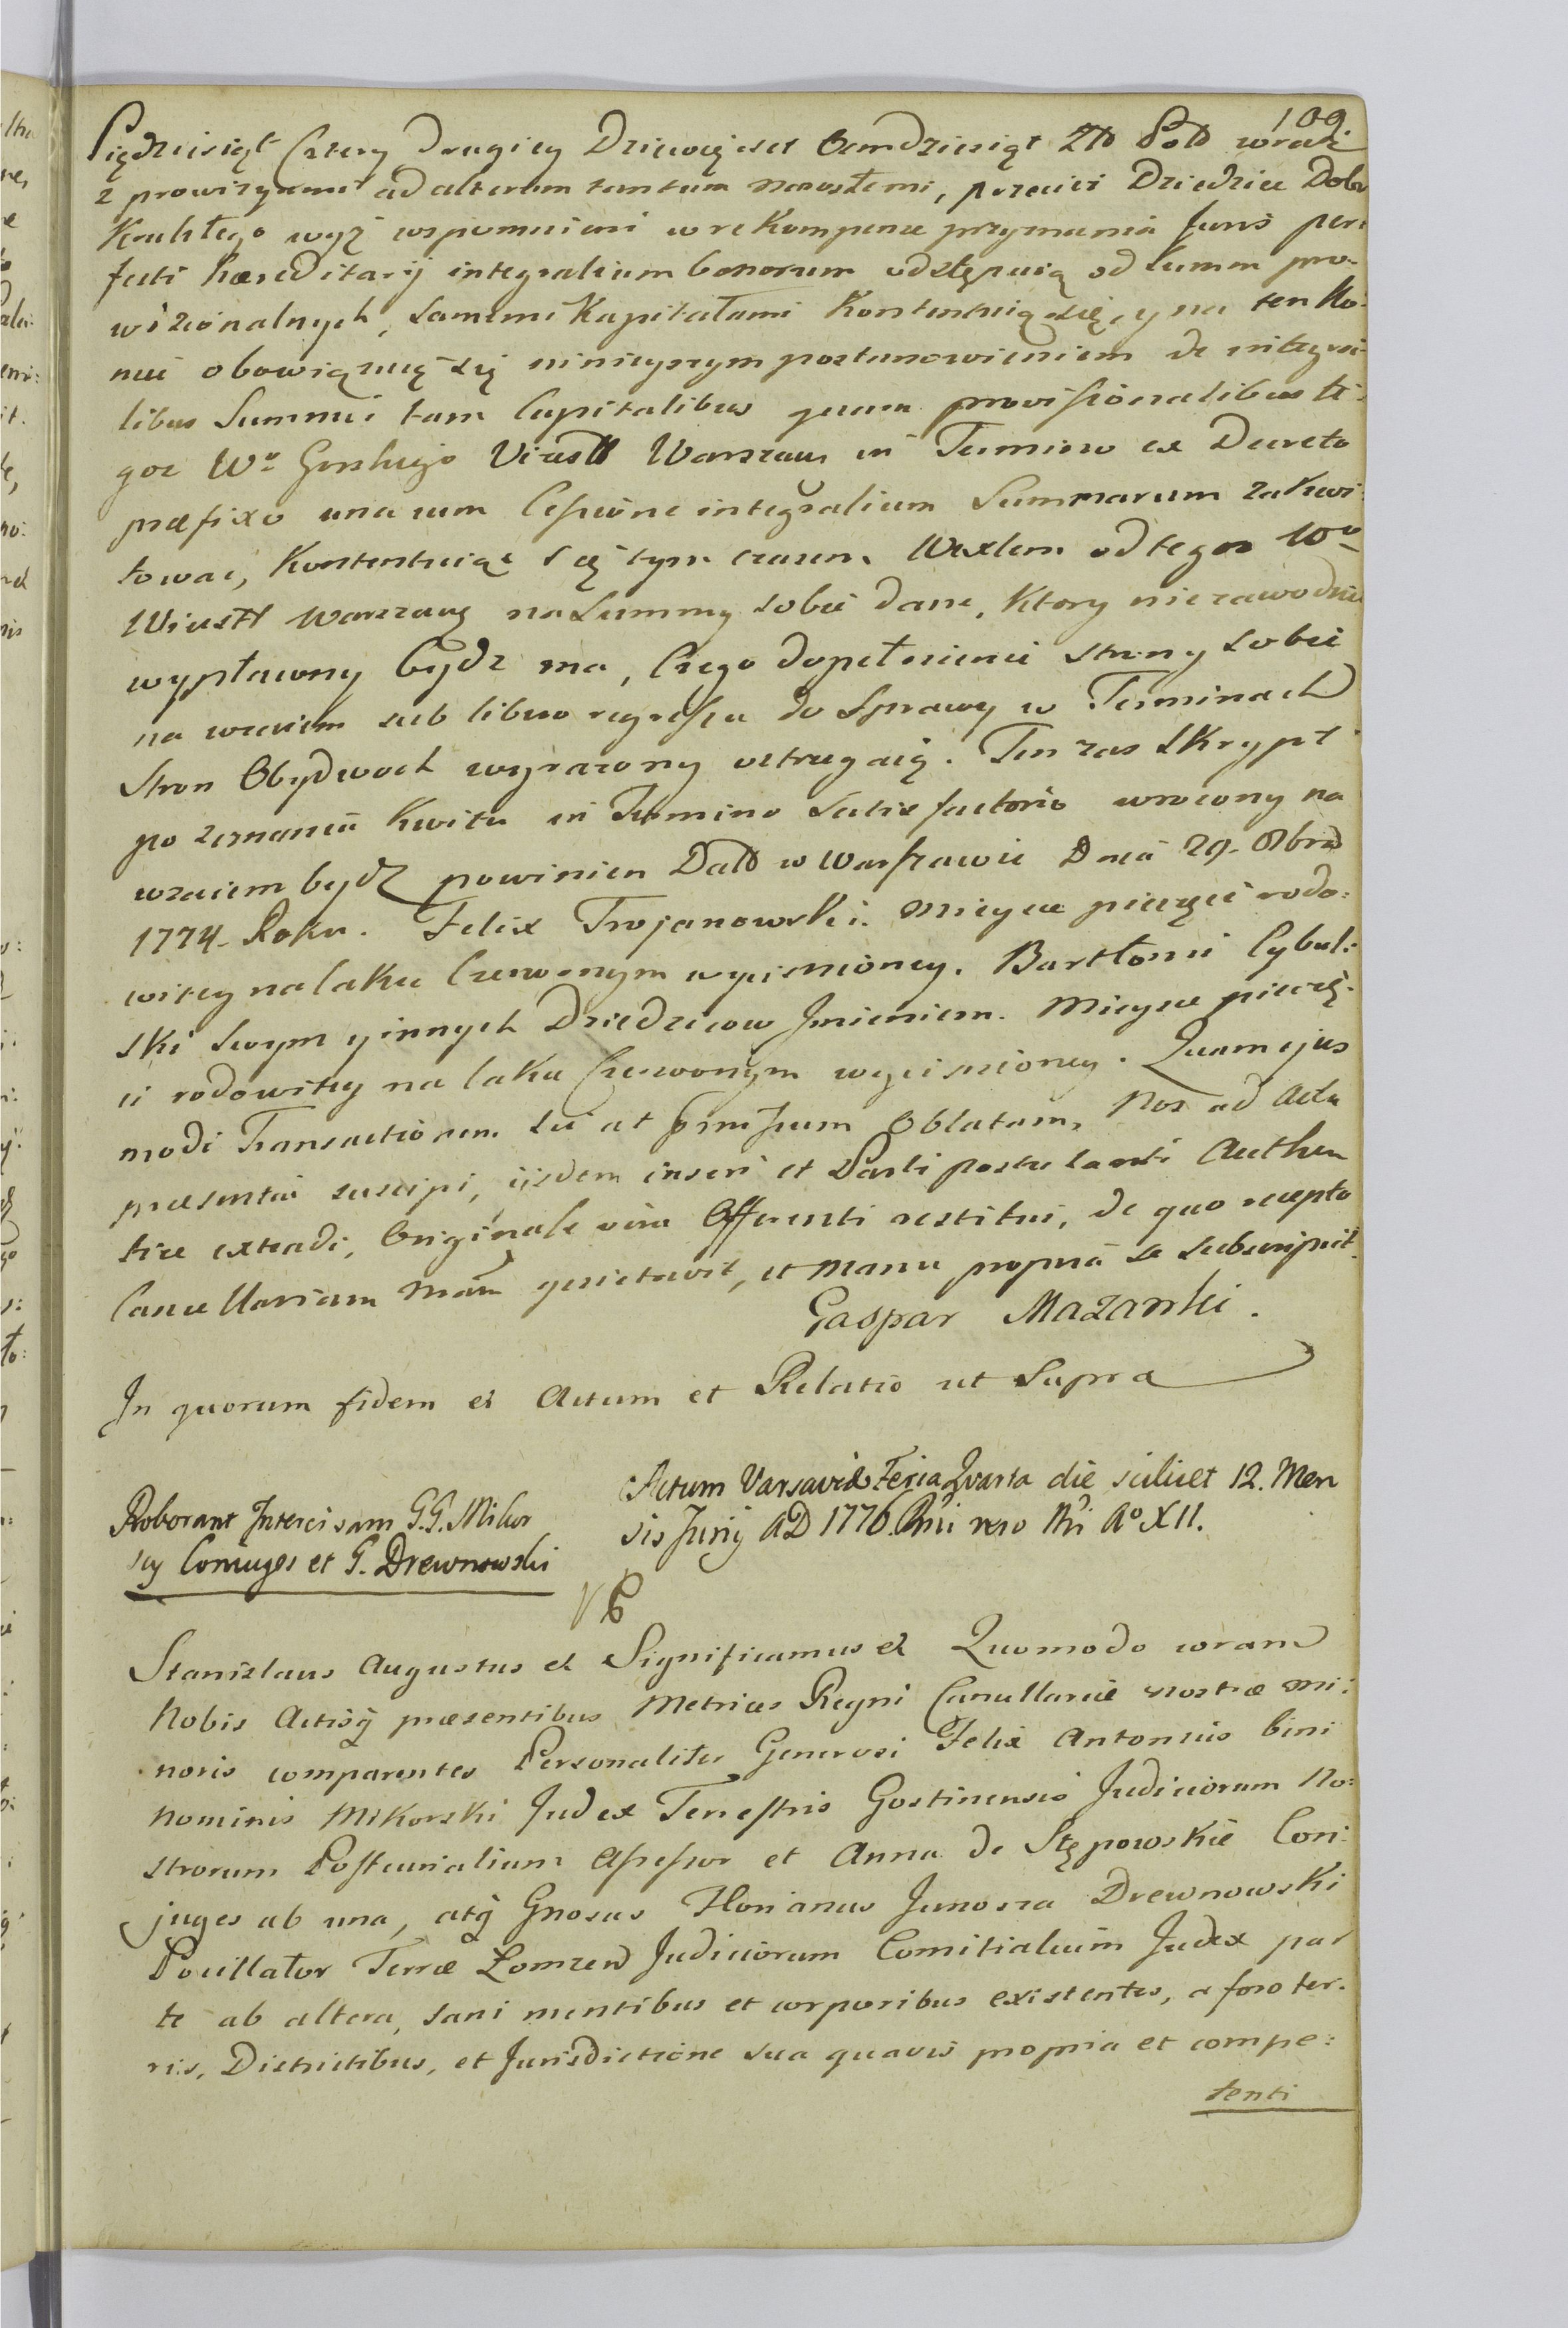 109
Pięдziesiąt Cztery Drugiey Dziewięset Osmdziesiąt Zł Pol wraz
z prowizyami ad alterum tantum narosłemi, przecież Dziedzice Dobr
Kruhłego wyż wspomnieni w rekompense przyznania Juris per:
fecti hæreditarij integralium bonorum odstępuią od Summ pro:
wizionalnych, samemi Kapitałami Kontentuią się, y na ten Ko:
niec obowiązuią się ninieyszym postanowieniem de integra:
libus Summis tam Capitalibus quam provisionalibus te:
goż Wo Gorskiego Vicestt Warszaw in Termino ex Decreto
præfixo una cum Cessione integralium Summarum zakwi:
tować, Kontentuiąc się tym czasem Wexlem od tegoż Wo
Vicestt Warszaw na Summy sobie dane, Ktory niezawodnie
wypłacony bydz ma, Czego dopełnienie strony sobie
na wzaiem sub libero regressu do Sprawy w Terminach
Stron Obydwoch wyrażony ostrzegaią. Ten zas Skrypt
po zeznaniu Kwitu in Termino Satisfactorio wrocony na
wzaiem bydz powinien Datt w Warszawie Dnia 29. 8bra
1774. Roku. Felix Trojanowski. Mieysce pieczęci rodo:
witey na laku Czerwonym wycisnioney. Bartłomi Cybul:
ski swym y innych Dziedzicow Jmieniem. Mieysce pieczę:
ci rodowitey na laku Czerwonym wycisnioney. Quam ejus
modi Transactionem sic ut præmissum Oblatam, Nos ad Acta
præsentia suscipi, iisdem inseri et Parti postulanti Authen
tice extradi, Originale vero Offerenti restitui, de quo recepto
Cancellariam Nram quietavit, et manu propria se subscripsit.
Gaspar Mazanki.
In quorum fidem et Actum et Relatio ut Supra
Roborant Intercisam G.G. Mikor
scy Coniuges et G. Drewnowski
Actum Varsaviæ Feria Quarta die scilicet 12. Men
sis Junij AD 1776. Rni vero Nri Ao XII.
Stanislaus Augustus et Significamus et Quomodo coram
Nobis Actisq præsentibus Metrices Regni Cancellariæ nostræ mi:
noris comparentes Personaliter Generosi Felix Antonius bini
nominis Mikorski Judex Terrestris Gostinensis Judiciorum No:
strorum Postcurialium Assessor et Anna de Stępowskie Con:
juges ab una, atq Gnosus Florianus Junosza Drewnowski
Pocillator Terræ Lomzen Judiciorum Comitialium Judex par
te ab altera, sani mentibus et corporibus existentes, a foro ter:
ris, Districtibus, et Jurisdictione sua quavis propria et compe:
tenti